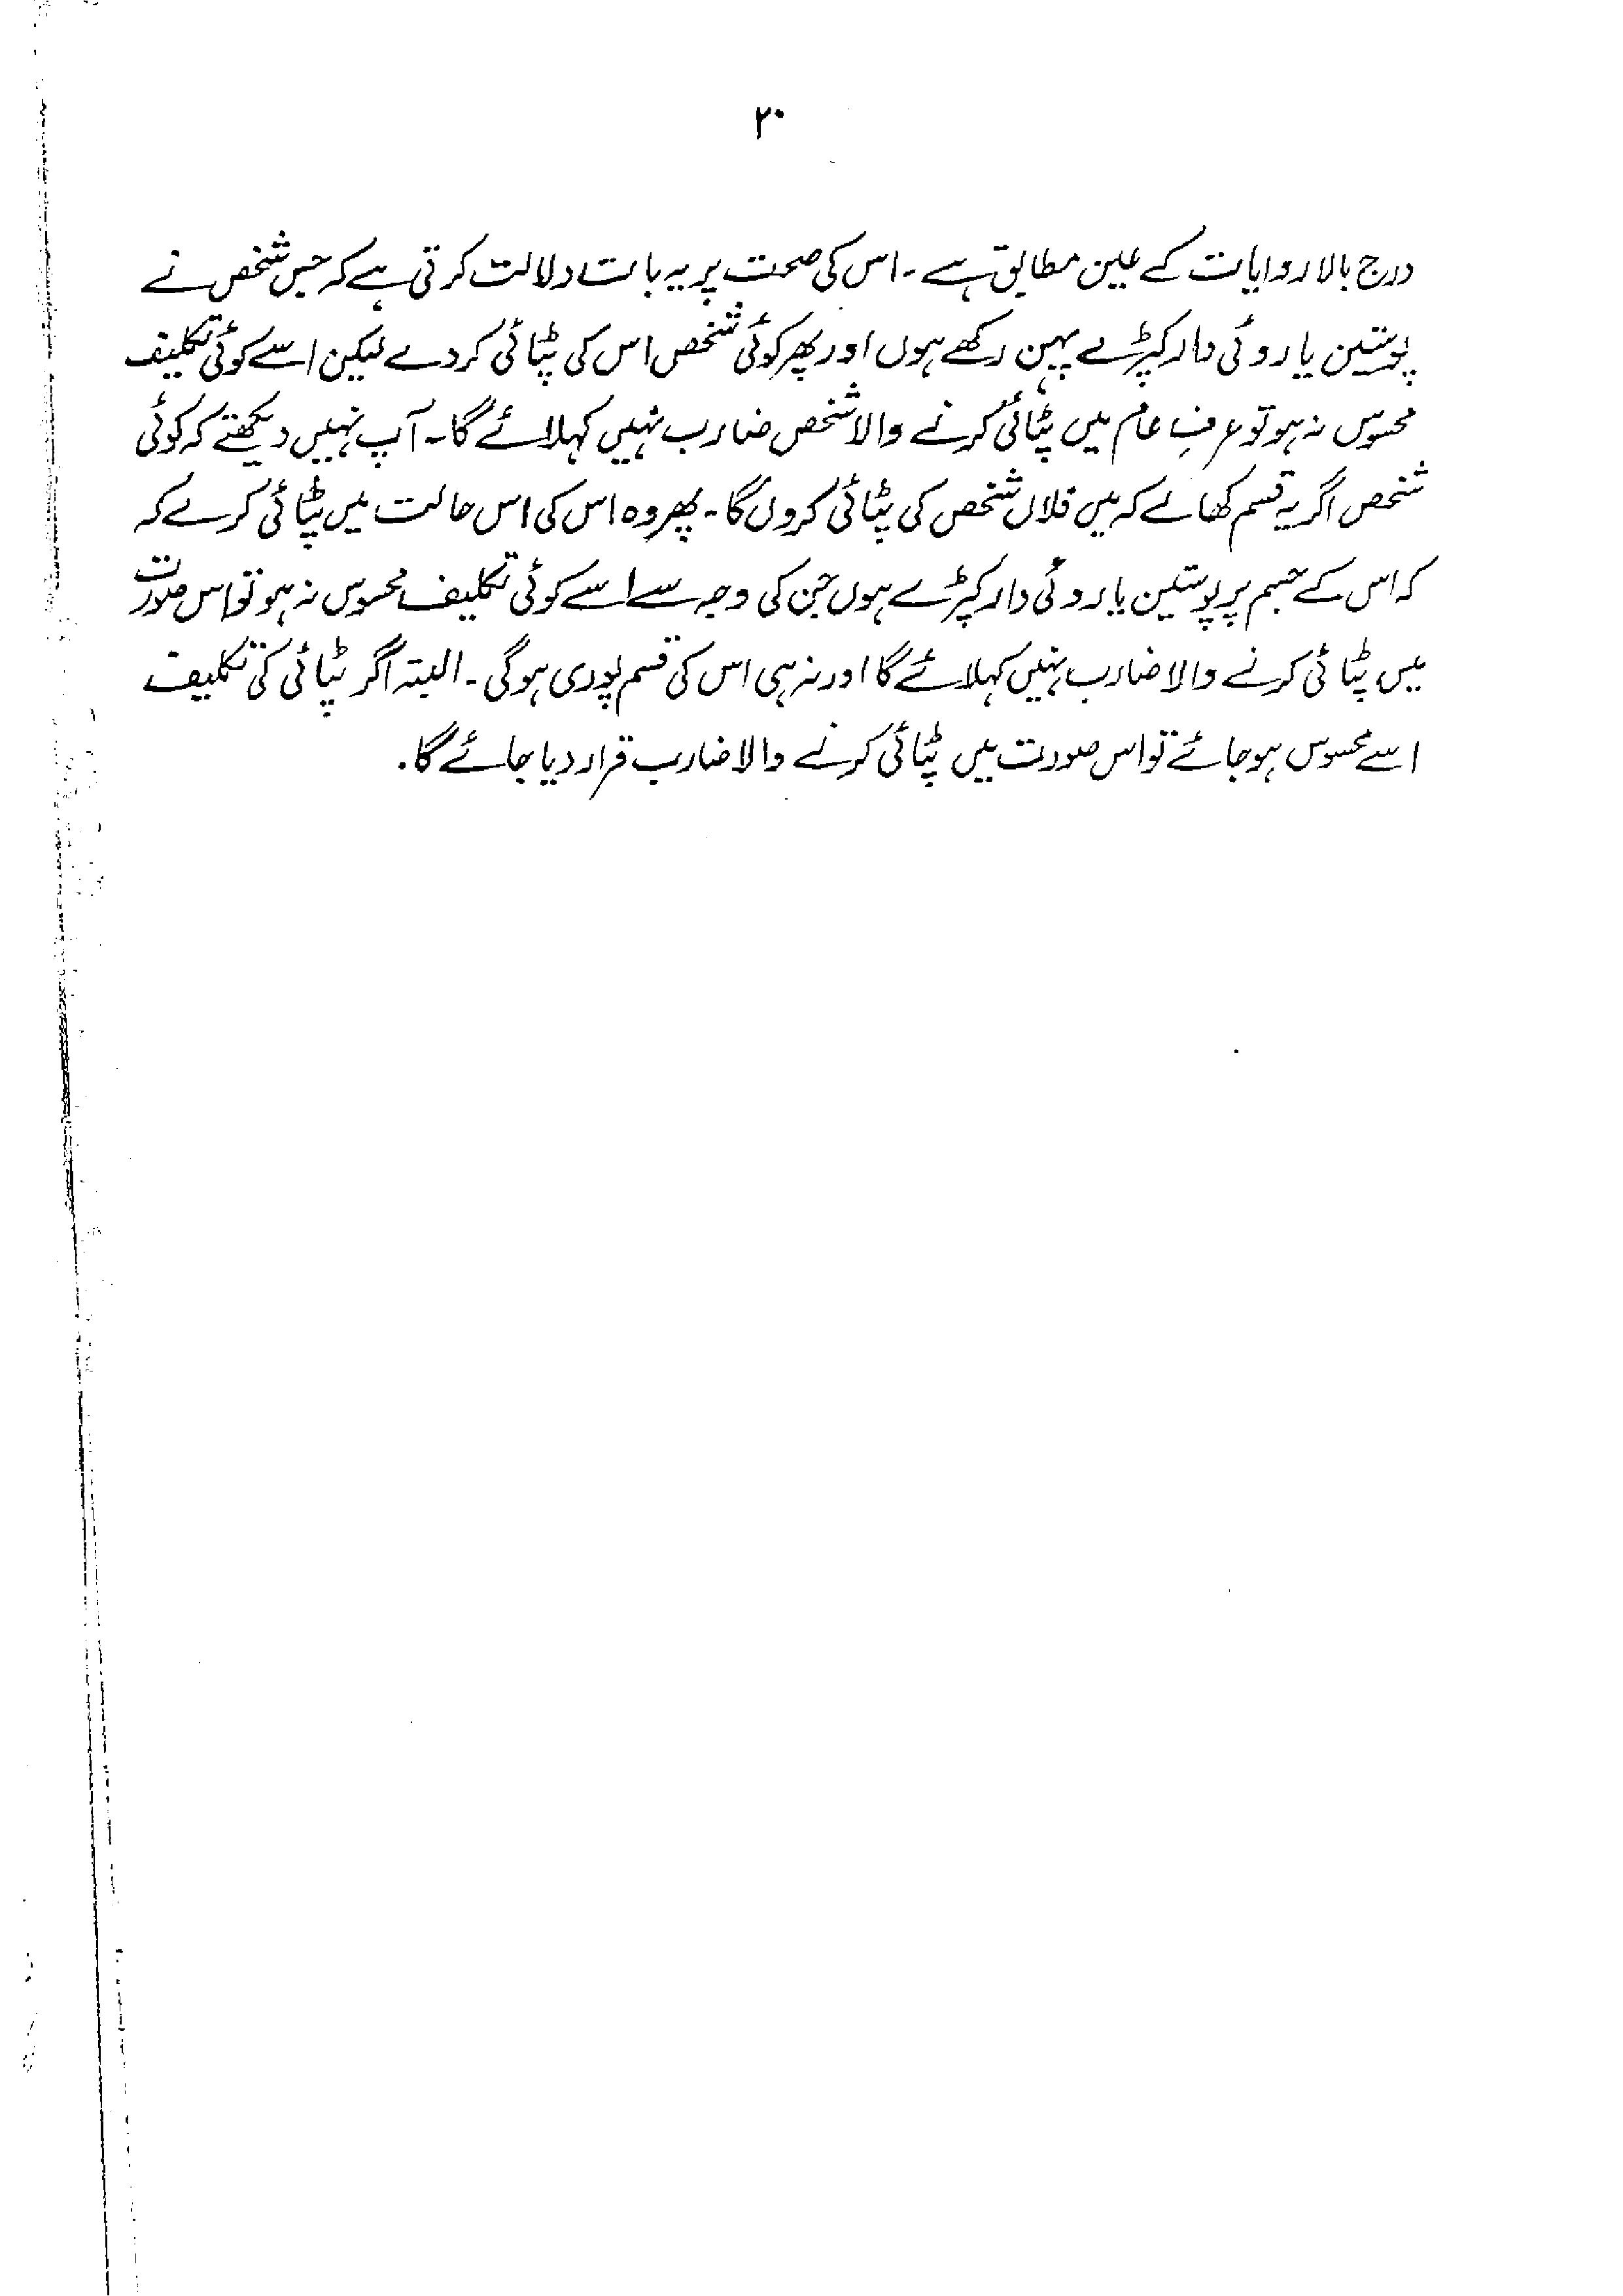 ۲۰
درج بالا روایات کے عین مطابق ہے۔ اس کی صحت پر یہ بات دلالت کرتی ہے کہ جس شخص نے
پوستین یا روئی دار کپڑے پہن رکھے ہوں اور پھر کوئی شخص اس کی پٹائی کر دے لیکن اسے کوئی تکلیف
محسوس نہ ہو تو عرفِ عام میں پٹائی کرنے والا شخص ضارب نہیں کہلائے گا۔ آپ نہیں دیکھتے کہ کوئی
شخص اگر یہ قسم کھالے کہ میں فلاں شخص کی پٹائی کروں گا۔ پھر وہ اس کی اس حالت میں پٹائی کرے کہ
کہ اس کے جسم پر پوستین یا روئی دار کپڑے ہوں جن کی وجہ سے اسے کوئی تکلیف محسوس نہ ہو تو اس صورت
میں پٹائی کرنے والا ضارب نہیں کہلائے گا اور نہ ہی اس کی قسم پوری ہوگی۔ البتہ اگر پٹائی کی تکلیف
اسے محسوس ہو جائے تو اس صورت میں پٹائی کرنے والا ضارب قرار دیا جائے گا.